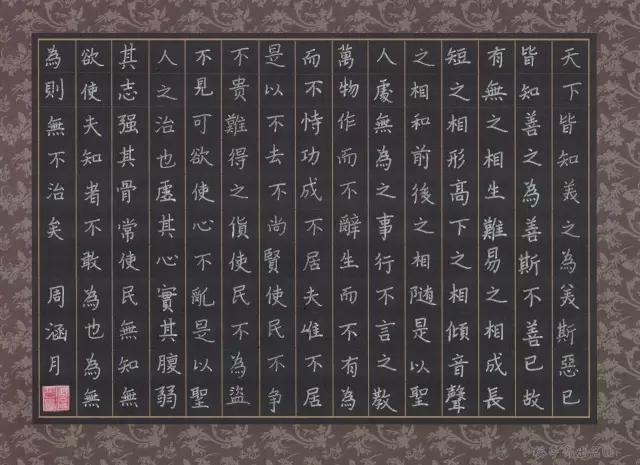 天下皆知美之為美斯惡已
皆知善之為善斯不善已故
有無之相生難易之相成長
短之相形高下之相傾音聲
之相和前後之相随是以聖
人處無為之事行不言之教
萬物作而不辭生而不有為
而不恃功成不居夫唯不居
是以不去不尚賢使民不争
不貴難得之貨使民不為盜
不見可欲使心不亂是以聖
人之治也虛其心實其腹弱
其志强其骨常使民無知無
欲使夫知者不敢為也為無
為則無不治矣 周涵月